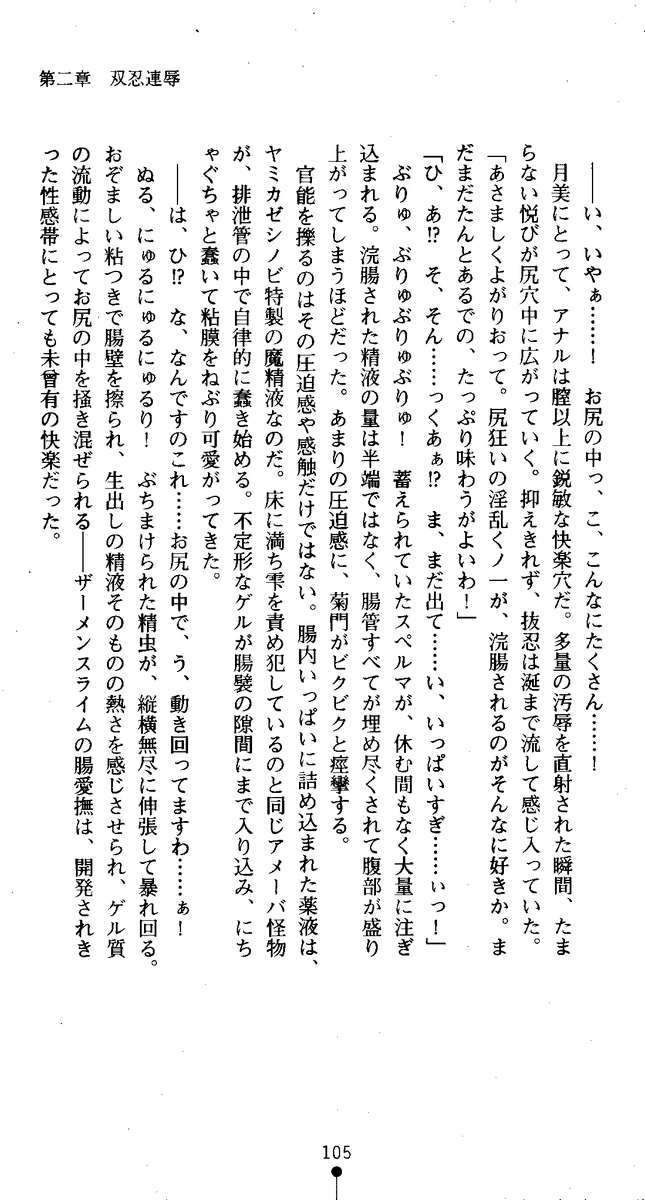 第二章　双忍連辱
――い、いやぁ……！　お尻の中っ、こ、こんなにたくさん……！
月美にとって、アナルは膣以上に鋭敏な快楽穴だ。多量の汚辱を直射された瞬間、たま
らない悦びが尻穴中に広がっていく。抑えきれず、抜忍は涎まで流して感じ入っていた。
「あさましくよがりおって。尻狂いの淫乱くノ一が、浣腸されるのがそんなに好きか。ま
だまだたんとあるでの、たっぷり味わうがよいわ！」
「ひ、あ!?　そ、そん……っくあぁ!?　ま、まだ出て……い、いっぱいすぎ……ぃっ！」
ぶりゅ、ぶりゅぶりゅぶりゅ！　蓄えられていたスペルマが、休む間もなく大量に注ぎ
込まれる。浣腸された精液の量は半端ではなく、腸管すべてが埋め尽くされて腹部が盛り
上がってしまうほどだった。あまりの圧迫感に、菊門がビクビクと痙攣する。
官能を擽るのはその圧迫感や感触だけではない。腸内いっぱいに詰め込まれた薬液は、
ヤミカゼシノビ特製の魔精液なのだ。床に満ち雫を責め犯しているのと同じアメーバ怪物
が、排泄管の中で自律的に蠢き始める。不定形なゲルが腸襞の隙間にまで入り込み、にち
ゃぐちゃと蠢いて粘膜をねぶり可愛がってきた。
――は、ひ!?　な、なんですのこれ……お尻の中で、う、動き回ってますわ……ぁ！
ぬる、にゅるにゅるにゅるり！　ぶちまけられた精虫が、縦横無尽に伸張して暴れ回る。
おぞましい粘つきで腸壁を擦られ、生出しの精液そのものの熱さを感じさせられ、ゲル質
の流動によってお尻の中を掻き混ぜられる――ザーメンスライムの腸愛撫は、開発されき
った性感帯にとっても未曾有の快楽だった。
105